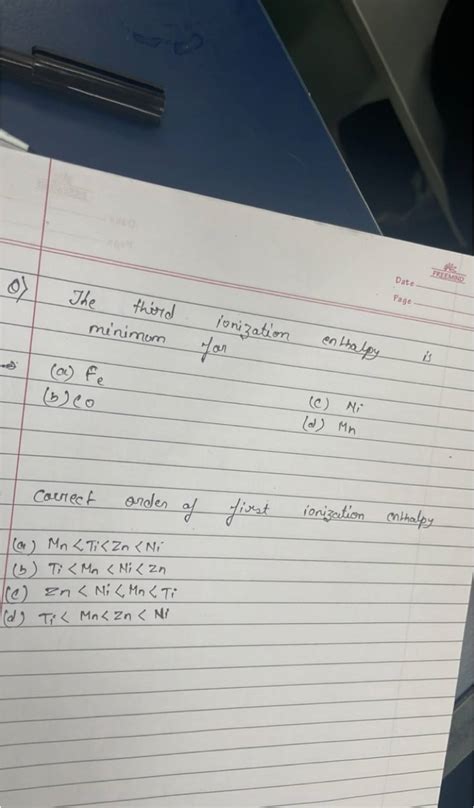 FREEMIND
Date
Page
Q) The third ionization enthalpy is
minimum for
(a) Fe
(b) CO
(c) Ni
(d) Mn
Correct order of first ionization enthalpy
(a) Mn < Ti < Zn < Ni
(b) Ti < Mn < Ni < Zn
(c) Zn < Ni < Mn < Ti
(d) Ti < Mn < Zn < Ni